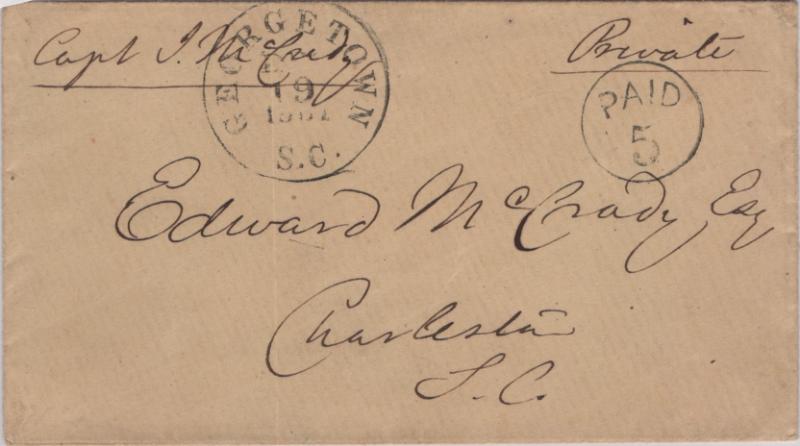 Capt J. McCrady
Private
GEORGETOWN
19
1861
S.C.
PAID
5
Edward McCrady Esq
Charleston
S.C.